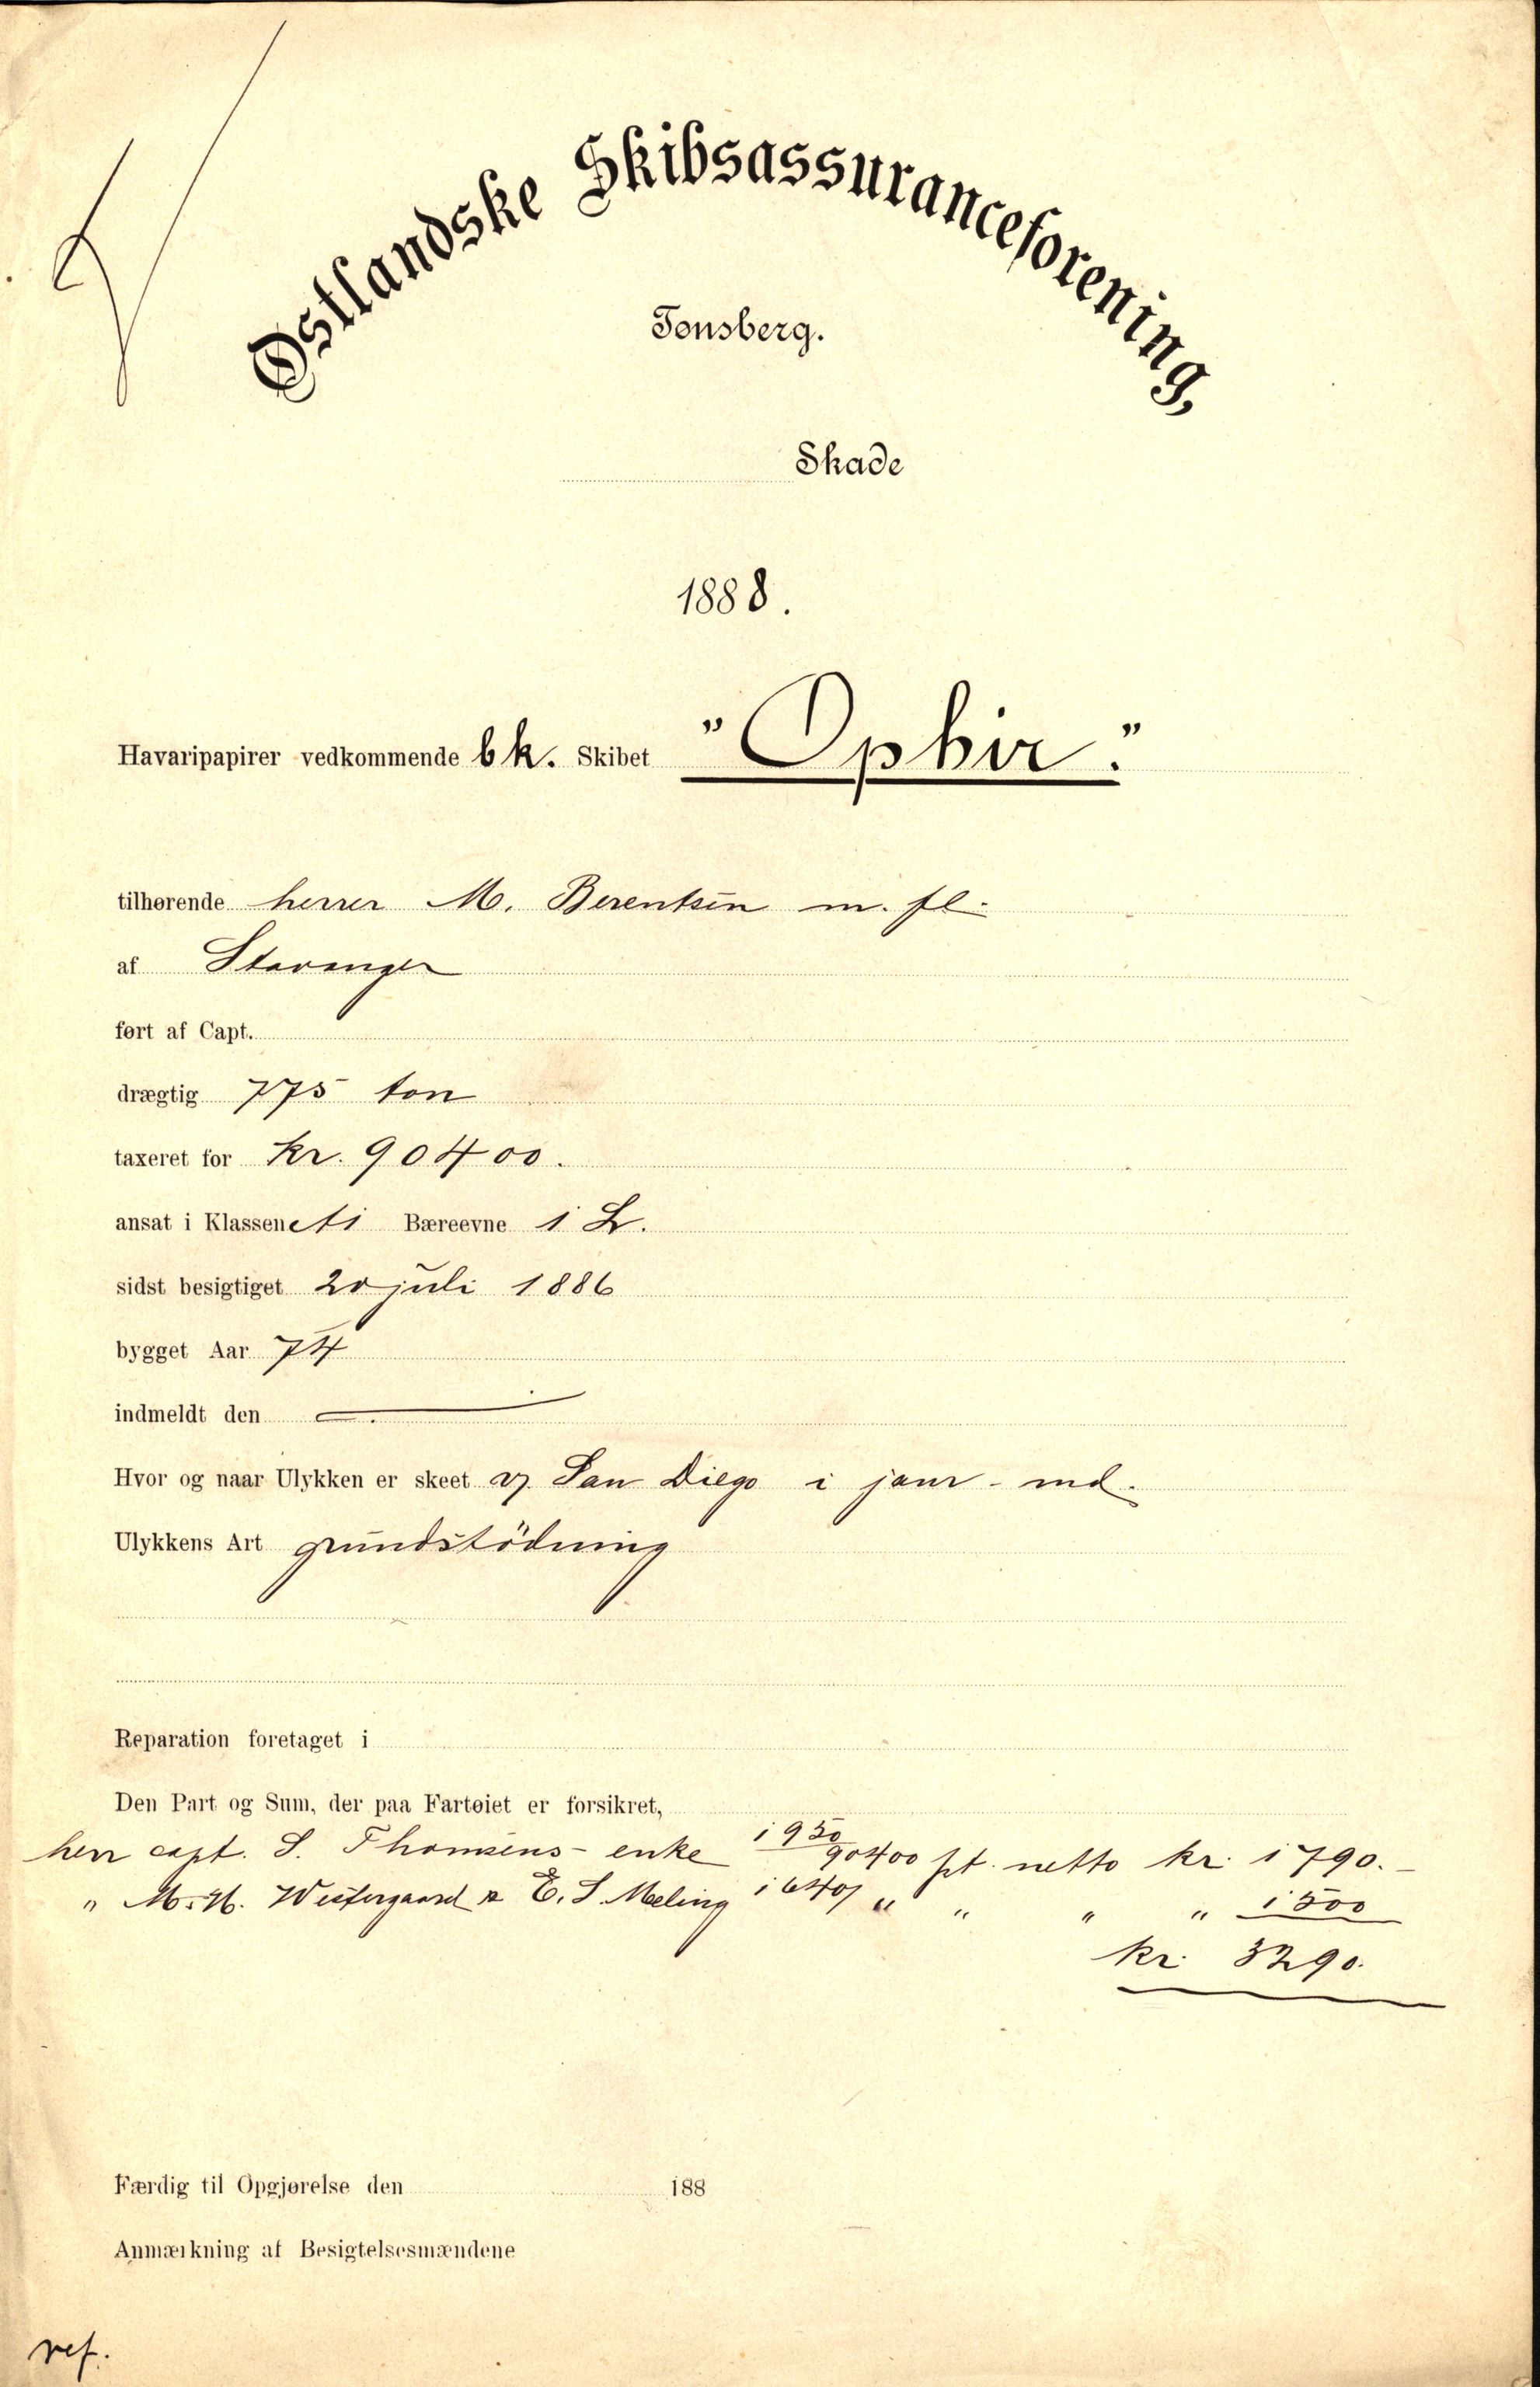 Østlandske Skibsassuranceforening,
Tønsberg.
Skade
1888.
Havaripapirer vedkommende bk. Skibet "Ophir."
tilhørende herrer M. Berentsen m. fl.
af Stavanger
ført af Capt.
drægtig 775 ton
taxeret for Kr. 90400.
ansat i Klassen A1 Bæreevne 1 L.
sidst besigtiget 20 juli 1886
bygget Aar 74
indmeldt den
Hvor og naar Ulykken er skeet v/ San Diego i janr - md.
Ulykkens Art grundstödning
Reparation foretaget i
Den Part og Sum, der paa Fartøiet er forsikret,
herr capt. S. Thomsens enke 1950/90400 pt. netto kr. 1790.-
" M. H. Westergaard & E. S. Meling 1640/" " " " 1500
kr. 3290.
Færdig til Opgjørelse den 188
Anmærkning af Besigtelsesmændene
ref.